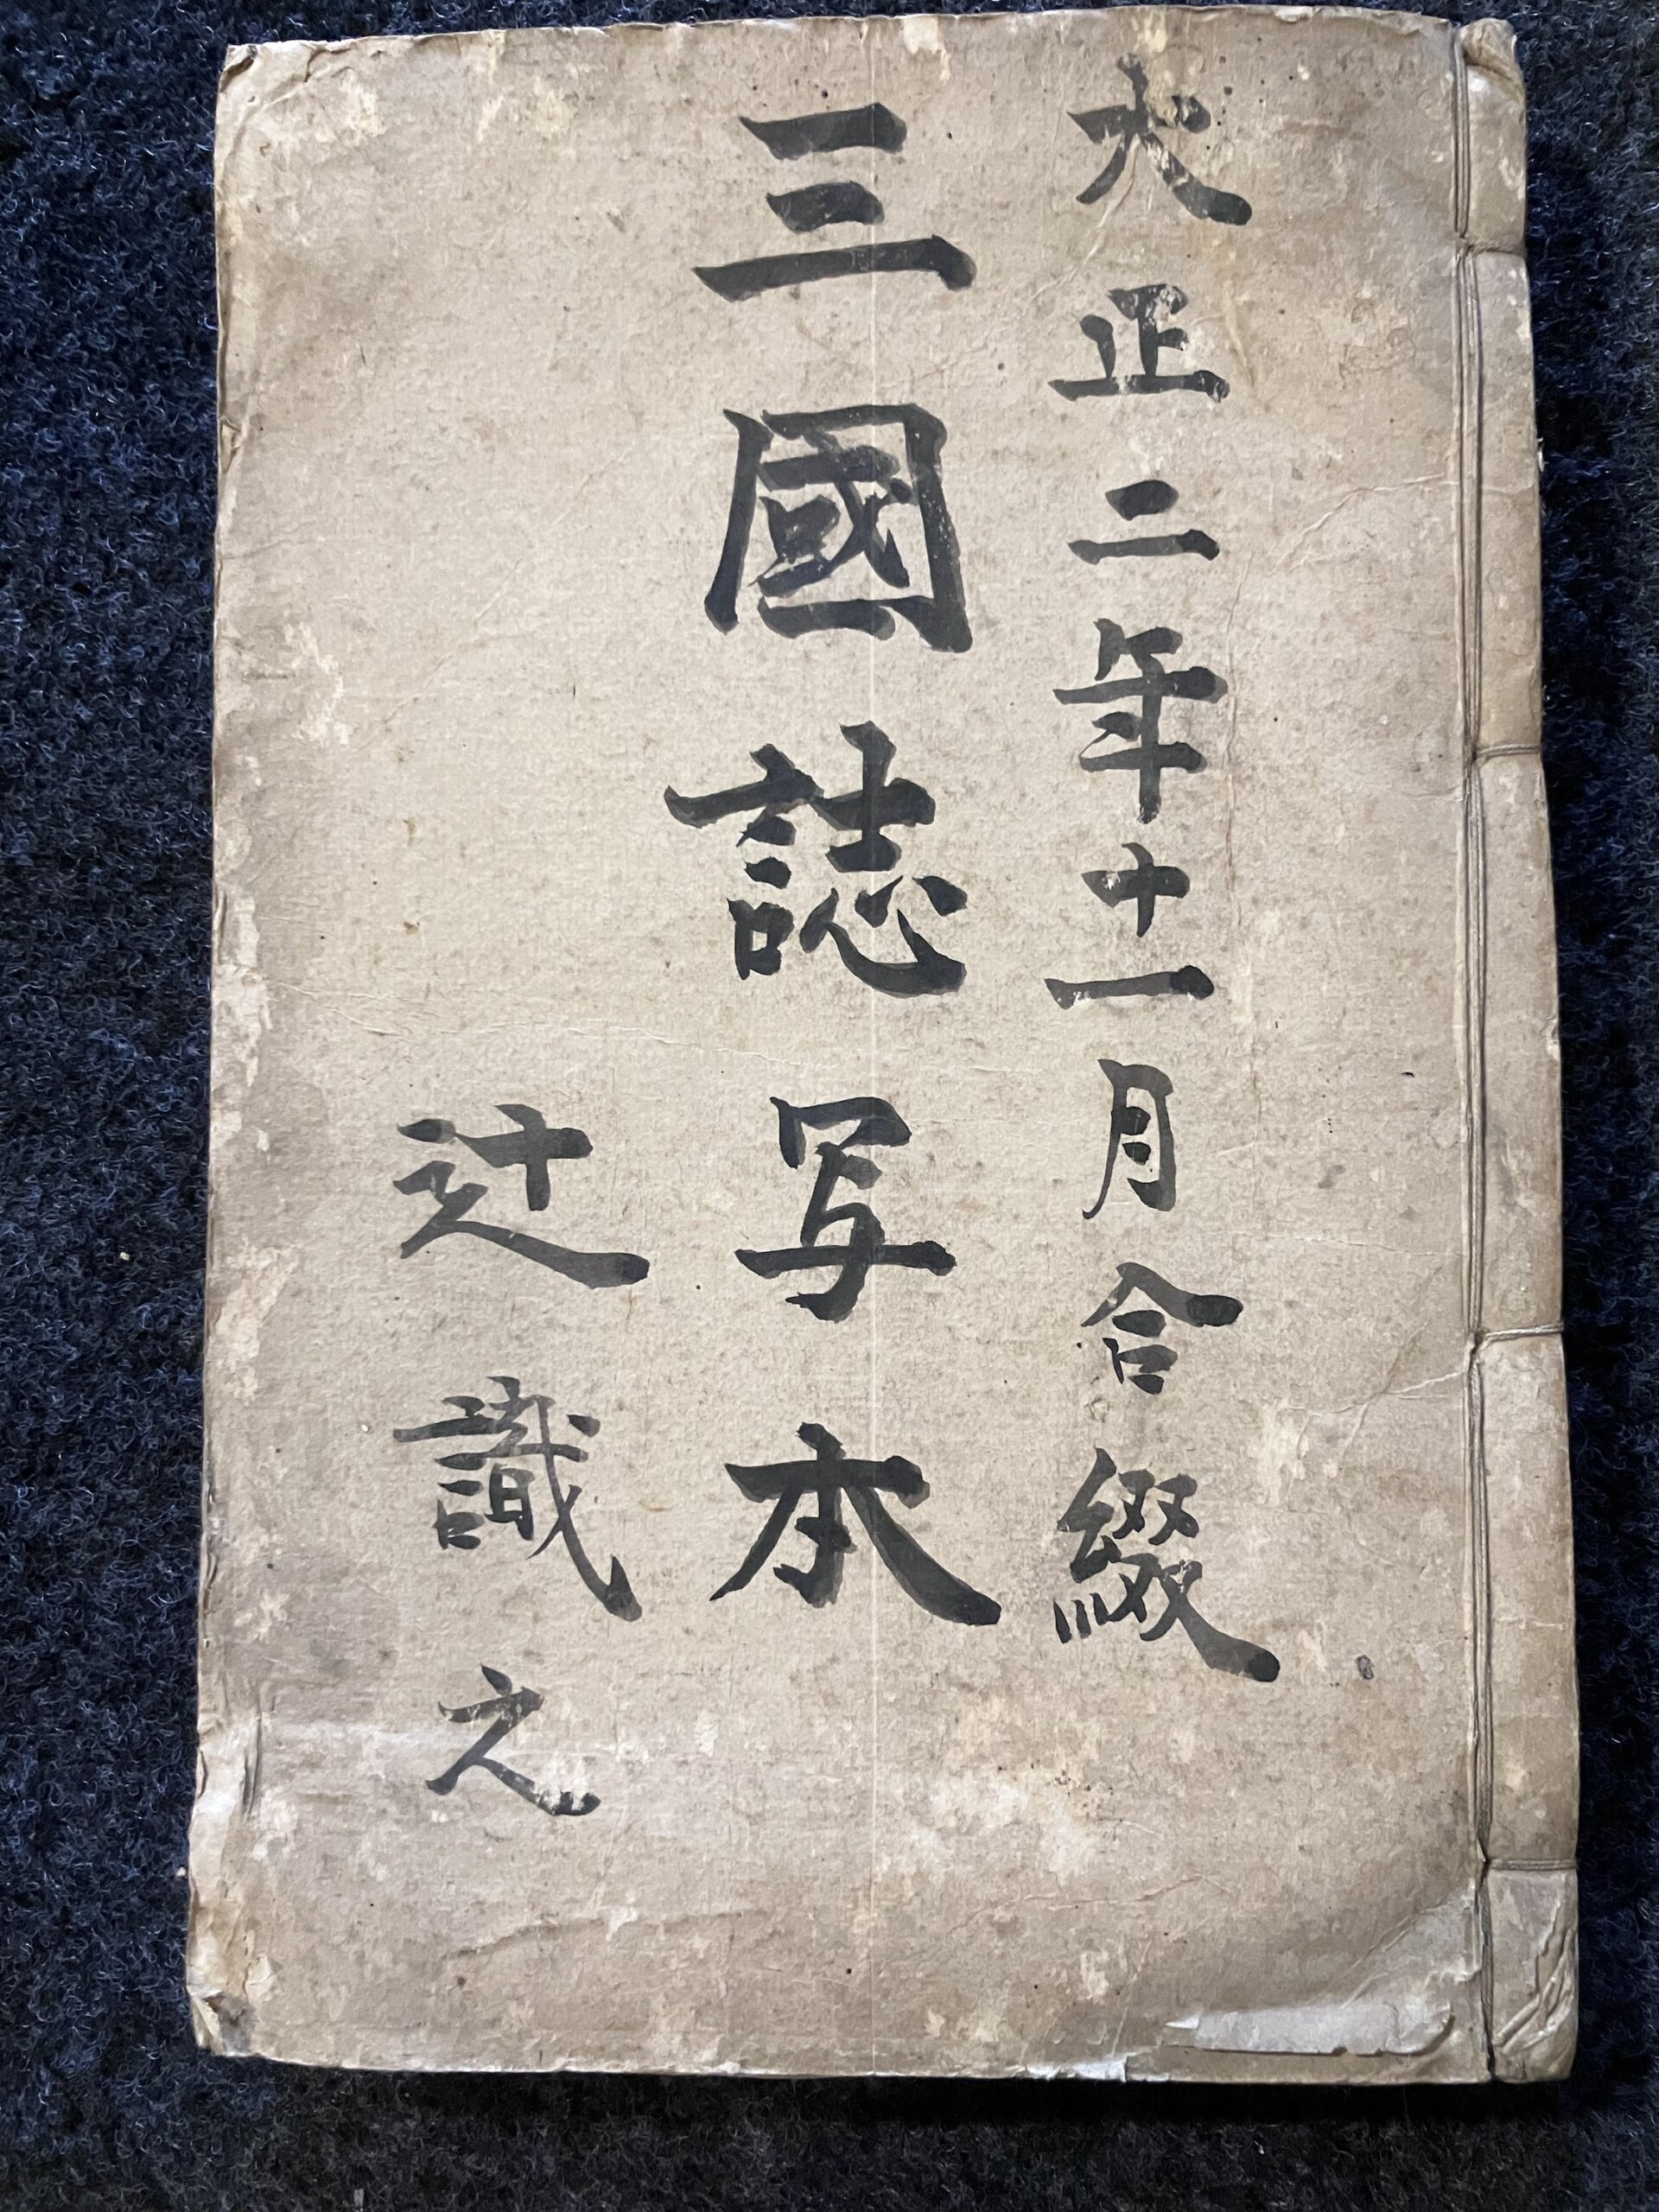 大正二年十一月合綴
三國誌写本
辻識之